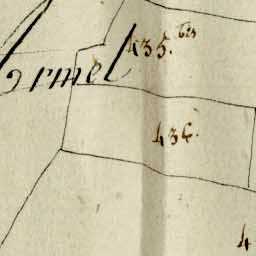 435. bis
ormel
436.
4